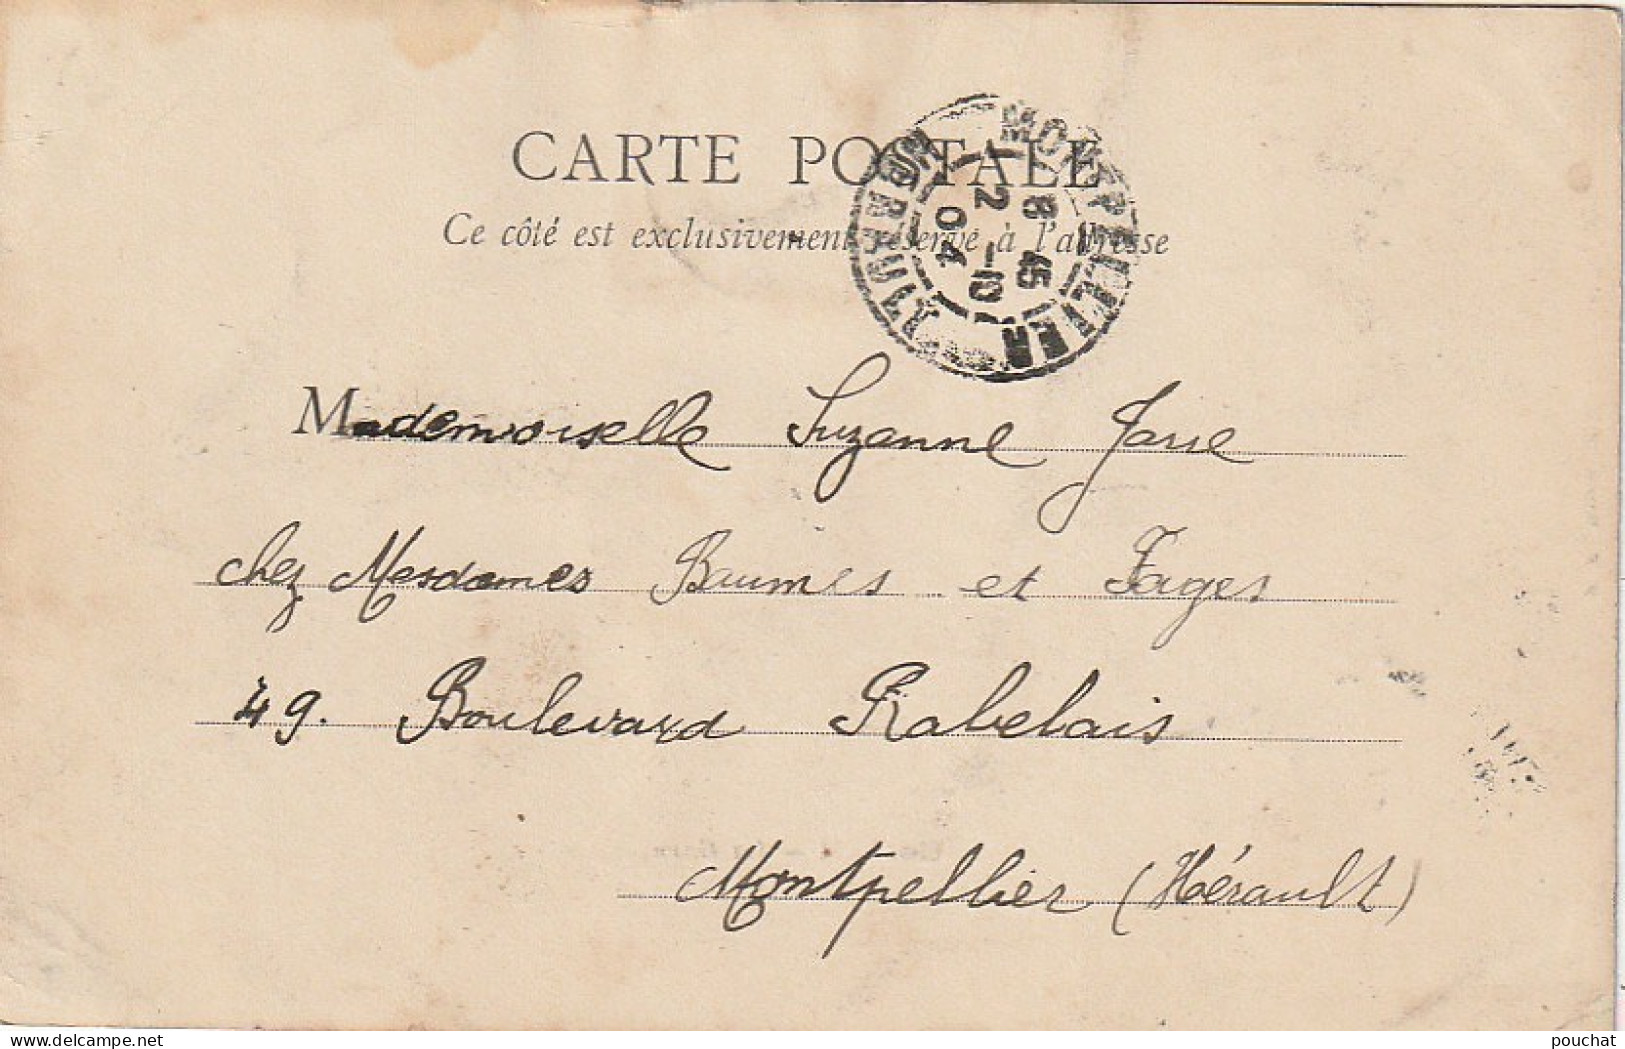 CARTE POSTALE
Ce côté est exclusivement réservé à l'adresse
MONTPELLIER
8 45
2 - 10
04
HERAULT
Mademoiselle Suzanne Jasse
chez Mesdames Baumes et Fages
49. Boulevard Rabelais
Montpellier (Hérault)
delcampe.net
pouchat